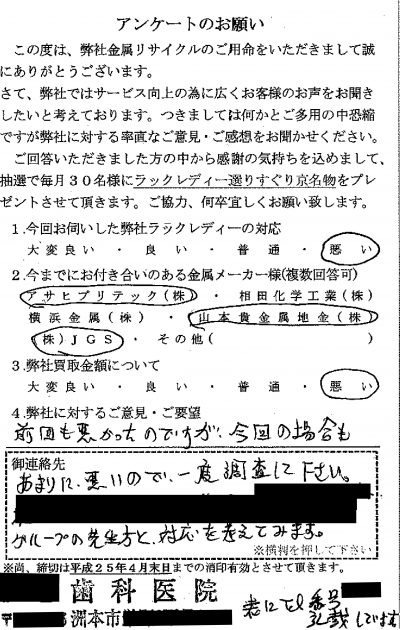 アンケートのお願い
この度は、弊社金属リサイクルのご用命をいただきまして誠
にありがとうございます。
さて、弊社ではサービス向上の為に広くお客様のお声をお聞き
したいと考えております。つきましては何かとご多用の中恐縮
ですが弊社に対する率直なご意見・ご感想をお聞かせください。
ご回答いただきました方の中から感謝の気持ちを込めまして、
抽選で毎月30名様にラックレディー選りすぐり京名物をプレ
ゼントさせて頂きます。ご協力、何卒宜しくお願い致します。
1.今回お伺いした弊社ラックレディーの対応
大変良い ・ 良い ・ 普通 ・ 悪い
2.今までにお付き合いのある金属メーカー様(複数回答可)
アサヒプリテック(株) ・ 相田化学工業(株)
横浜金属(株) ・ 山本貴金属地金(株)
(株)JGS ・ その他( )
3.弊社買取金額について
大変良い ・ 良い ・ 普通 ・ 悪い
4.弊社に対するご意見・ご要望
前回も悪かったのですが、今回の場合も
御連絡先
あまりに、悪いので、一度調査して下さい。
グループの先生方と、対応を考えてみます。
※横判を押して下さい
※尚、締切は平成25年4月末日までの消印有効とさせて頂きます。
歯科医院
〒 洲本市
番号
しています